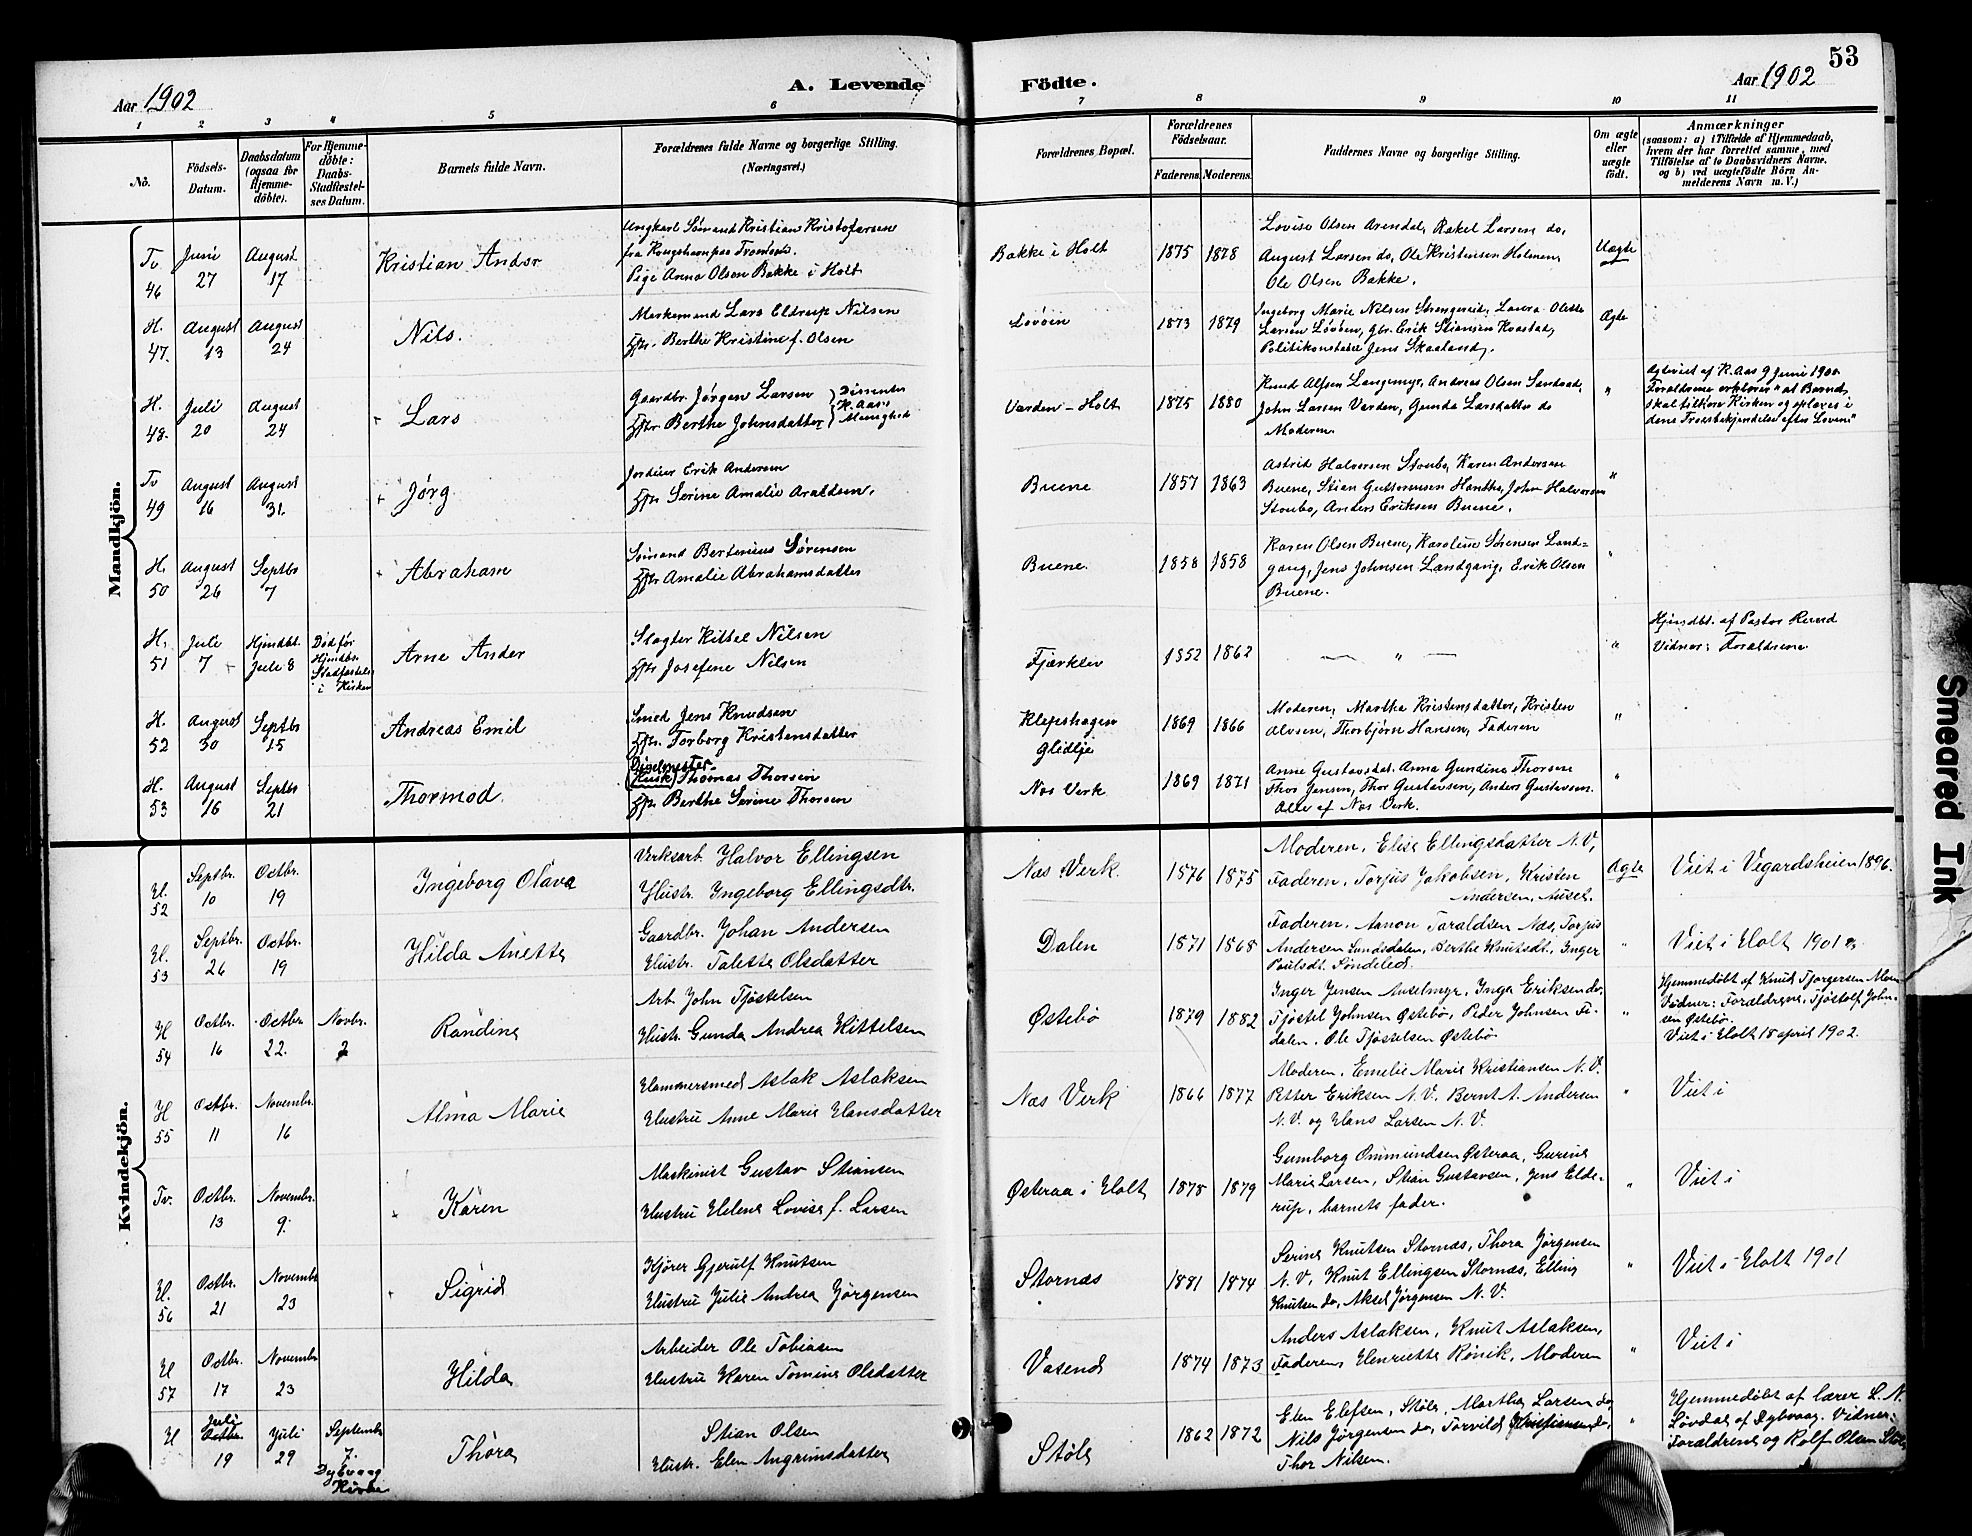 53
Aar 1902
A. Levende
Födte.
Aar 1902
1 2 3 4 5 6 7 8 9 10 11
No.
Födsels-
Datum.
Daabsdatum
(ogsaa for
Hjemme-
döbte).
For Hjemme-
döbte:
Daabs-
Stadfæstel-
ses Datum.
Barnets fulde Navn.
Forældrenes fulde Navne og borgerlige Stilling.
(Næringsvei.)
Forældrenes Bopæl.
Forældrenes
Födselsaar.
Faderens. Moderens.
Faddernes Navne og borgerlige Stilling.
Om ægte
eller
uægte
födt.
Anmærkninger
(saasom: a) i Tilfælde af Hjemmedaab,
hvem der har forrettet samme, med
Tilföielse af to Daabsvidners Navne.
og b) ved uægtefödte Börn An-
melderens Navn m. V.)
Mandkjön.
Tv
46
Juni
27
August
17
Kristian Ander
Ungkarl Sømand Kristian Kristofersen
fra Kongshavn
Pige Anna Olsen Bakke i Holt
Bakke i Holt
1875 1878
Lovise Olsen Arendal, Rakel Larsen do,
August Larsen do, Ole Kristensen Holmen,
Ole Olsen Bakke.
Uægte
H.
47.
August
13
August
24
Nils.
Lars Eldrup Nilsen
Htr. Berthe Kristine f. Olsen
Lövöin
1873 1879
Ingeborg Marie Nilsen Strengereid, Laura Olette
Larsen Lövöen, gbr. Erik Stiansen Kvastad,
Politikonstabel Jens Skaaland.
Ægte
H.
48.
Juli
20
August
24
Lars
Gaardbr. Jörgen Larsen
Htr Berthe Johnsdatter
Dissenter
K. Aas's
Menighed
Varden - Holt
1875 1880
Knud Alfsen Langemyr, Andreas Olsen
John Larsen Varden, Gunda Larsdatter do
Moderen.
"
af K. Aas 9 Juni 1900
Forældrene erklærer "at Barnet
skal tilhøre Kirken og oplæres i
dens Troesbekjendelse efter Loven"
Tv
49
August
16
August
31.
Jörg
Erik Andersen
Htr Serine Amalie Araldsen.
Buene
1857 1863
Astrid Halvorsen Stoubo, Karen Andersen
Buene, Stian Guttormsen Hantho, John Halvorsen
Stoubo, Anders Eriksen Buene.
"
H.
50
August
26
Septbr
7
Abraham
Sømand Bertinius Sørensen
Htr Amalie Abrahamsdatter
Buene.
1858 1858
Karen Olsen Buene, Karoline Sørensen Land=
gang, Jens Johnsen Landgang, Erik Olsen
Buene.
"
H.
51
Juli
7
Hjmdbt.
Jule 8
Död för
Hjmdbs.
Stadfæstelse
i Kirken
Arne Ander
Slagter Kittel Nilsen
Htr Josefine Nilsen
Fjærklev
1852 1862
— " —
"
Hjmdbt. af Pastor Rund
Vidner: Forældrene
H.
52
August
30
Septbr
15
Andreas Emil
Smed Jens Knudsen
Htr. Torborg Kristensdatter
Klepshagen
Glidlje
1869 1866
Moderen, Martha Kristensdatter, Kristen
Alvsen, Thorbjörn Hansen, Faderen
"
H.
53
August
16
Septbr
21
Thormod
Thomas Thorsen
Htr. Berthe Serine Thorsen
Nes Verk
1869 1871
Anne Gustavsdat. Anna Gundine Thorsen
Thor Jensen, Thor Gustavsen, Anders Gustavsen.
Alle af Nes Verk.
"
Kvindekjön.
H.
52
Septbr.
10
Octbr.
19
Ingeborg Olava
Verksarb. Halvor Ellingsen
Hustr. Ingeborg Ellingsdtr.
Næs Verk.
1876 1875
Moderen, Elise Ellingsdatter N. V,
Faderen, Torjus Jakobsen, Kristen
Andersen,
Ægte
Viet i Vegardsheien 1896.
H.
53
Septbr.
26
Octbr.
19
Hilda Anette
Gaardbr. Johan Andersen
Hustr. Talette Olsdatter
Dalen
1871 1868
Faderen, Aanon Taraldsen Næs, Torjus
Andersen Sundsdalen, Berthe Knutsdt, Inger
Poulsdt. Söndeled.
"
Viet i Holt 1901
H
54
Octbr.
16
Octbr.
22.
Novbr.
2
Randine
Arb. John Tjöstelsen
Hustr. Gunda Andrea Kittelsen
Østebö
1879 1882
Inger Jensen Auselmyr, Inga Eriksen do,
Tjöstel Johnsen Østebö, Peder Johnsen Fi-
dalen, Ole Tjöstelsen Østebö
"
Hjemmedöbt af Knud Tjorgersen Moen
Vidner: Forældrene, Tjöstolf John-
sen Østebö.
Viet i Holt 18 april 1902.
H
55
Octbr.
11
Novembr.
16
Alma Marie
Hammersmed Aslak Aslaksen
Hustru Anne Marie Hansdatter
Næs Verk
1866 1877
Moderen, Emelie Marie Kristiansen N. V.
Petter Eriksen N. V. Bernt A. Andersen
N. V. og Hans Larsen N. V.
"
Viet i
Tv.
Octbr.
13
Novembr.
9.
Karen
Maskinist Gustav Stiansen
Hustru Helene Lovise f. Larsen
Østeraa i Holt
1878 1879
Gumborg Ommundsen Østeraa, Gurine
Marie Larsen, Stian Gustavsen, Jens Elde-
rup, barnets fader.
"
Viet i
H.
56
Octbr.
21
Novembr
23
Sigrid
Kjörer Gjerulf Knutsen
Hustru Julie Andrea Jörgensen
Stornæs
1881 1874
Serine Knutsen Stornæs, Thora Jörgensen
N. V, Knut Ellingsen Stornæs, Elling
Knutsen do, Aksel Jörgensen N. V.
"
Viet i Holt 1901
H
57
Octbr.
17
Novembr
23
Hilda
Arbeider Ole Tobiasen
Hustru Karen Tomine Olsdatter
Vasend
1874 1873
Anders Aslaksen, Knut Aslaksen,
Faderen, Henriette Rönik, Moderen
"
Viet i
H
Juli
Octbr.
19
Juli
29
Septembr
7.
Dybvaag
Kirke
Thora
Stian Olsen
Hustr. Elen Angrimsdatter
Stöle
1862 1872
Elen Elefsen, Stöle, Marthe Larsen do,
Nils Jörgensen do, Torvild Christiansen do,
Thor Nilsen.
"
Hjemmedöbt af lærer L. N.
Lövdal af Dybvaag. Vidner:
Forældrene og Rolf Olsen Stöle
Smeared Ink